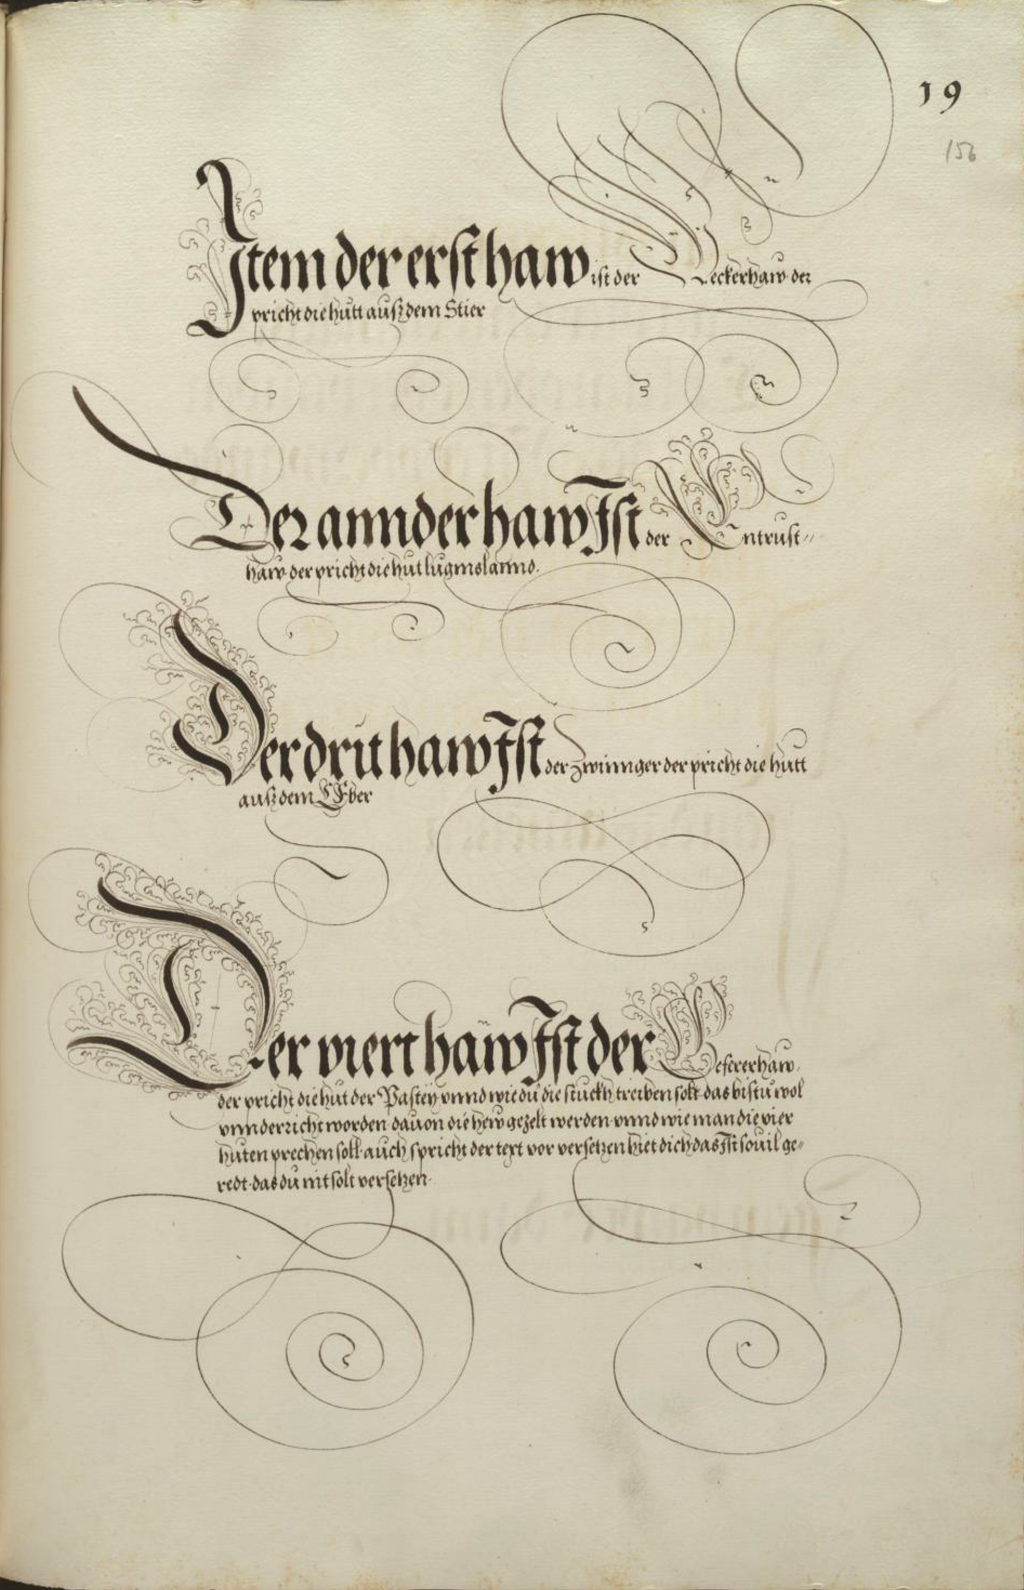 19
156
Item der erst haw ist der Weckerhaw der
pricht die hutt auß dem Stier
Der annder haw Ist der Entrust=
haw der pricht die hut luginslannd.
Der drit haw Ist der Zwinnger der pricht die hutt
auß dem Eber
Der viert haw Ist der Gefererhaw.
der pricht die hut der Pasteÿ vnnd wie du die stuckh treiben solt das bistu wol
vnnderricht worden dauon die hew gezelt werden vnnd wie man die vier
huten prechen soll auch spricht der text vor versetzen hiet dich das Ist souil ge=
redt das du nit solt versetzen